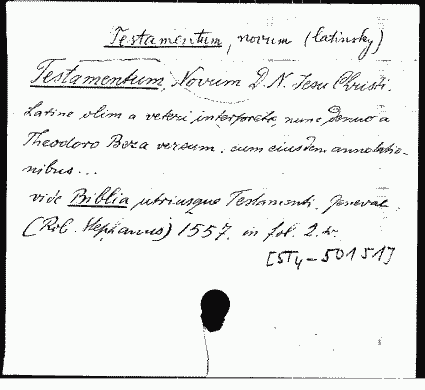 Testamentum, novum (latinsky)
Testamentum, Novum D. N. Jesu Christi.
Latine olim a veteri interprete, nunc denuo a
Theodoro Beza versum, cum eiusdem annotatio-
nibus...
vide Biblia utriusque Testamenti. Genevae
(Rob. Stephanus) 1557. in fol. 2.
[ST4-50151]